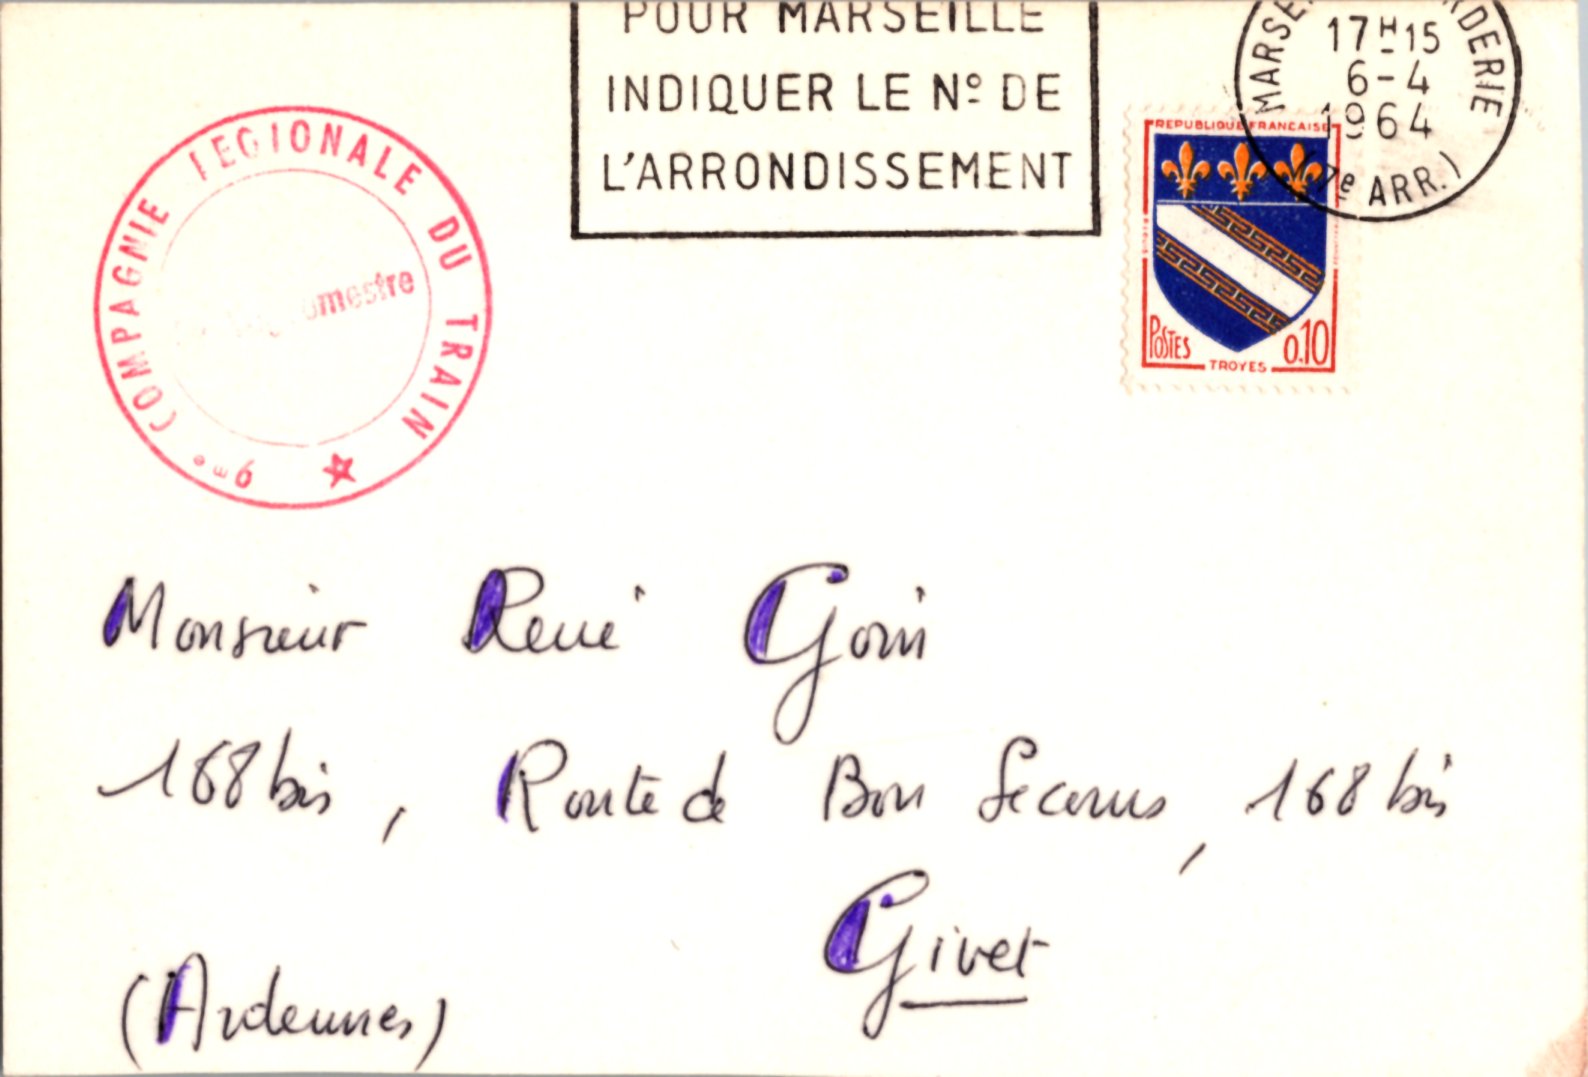 POUR MARSEILLE
INDIQUER LE Nº DE
L'ARRONDISSEMENT
17H15
6-4
1964
(7e ARR.)
REPUBLIQUE FRANCAISE
POSTES
0.10
TROYES
9me COMPAGNIE REGIONALE DU TRAIN
Monsieur René Gorin
168 bis, Route de Bon Secours, 168 bis
Givet
(Ardennes)